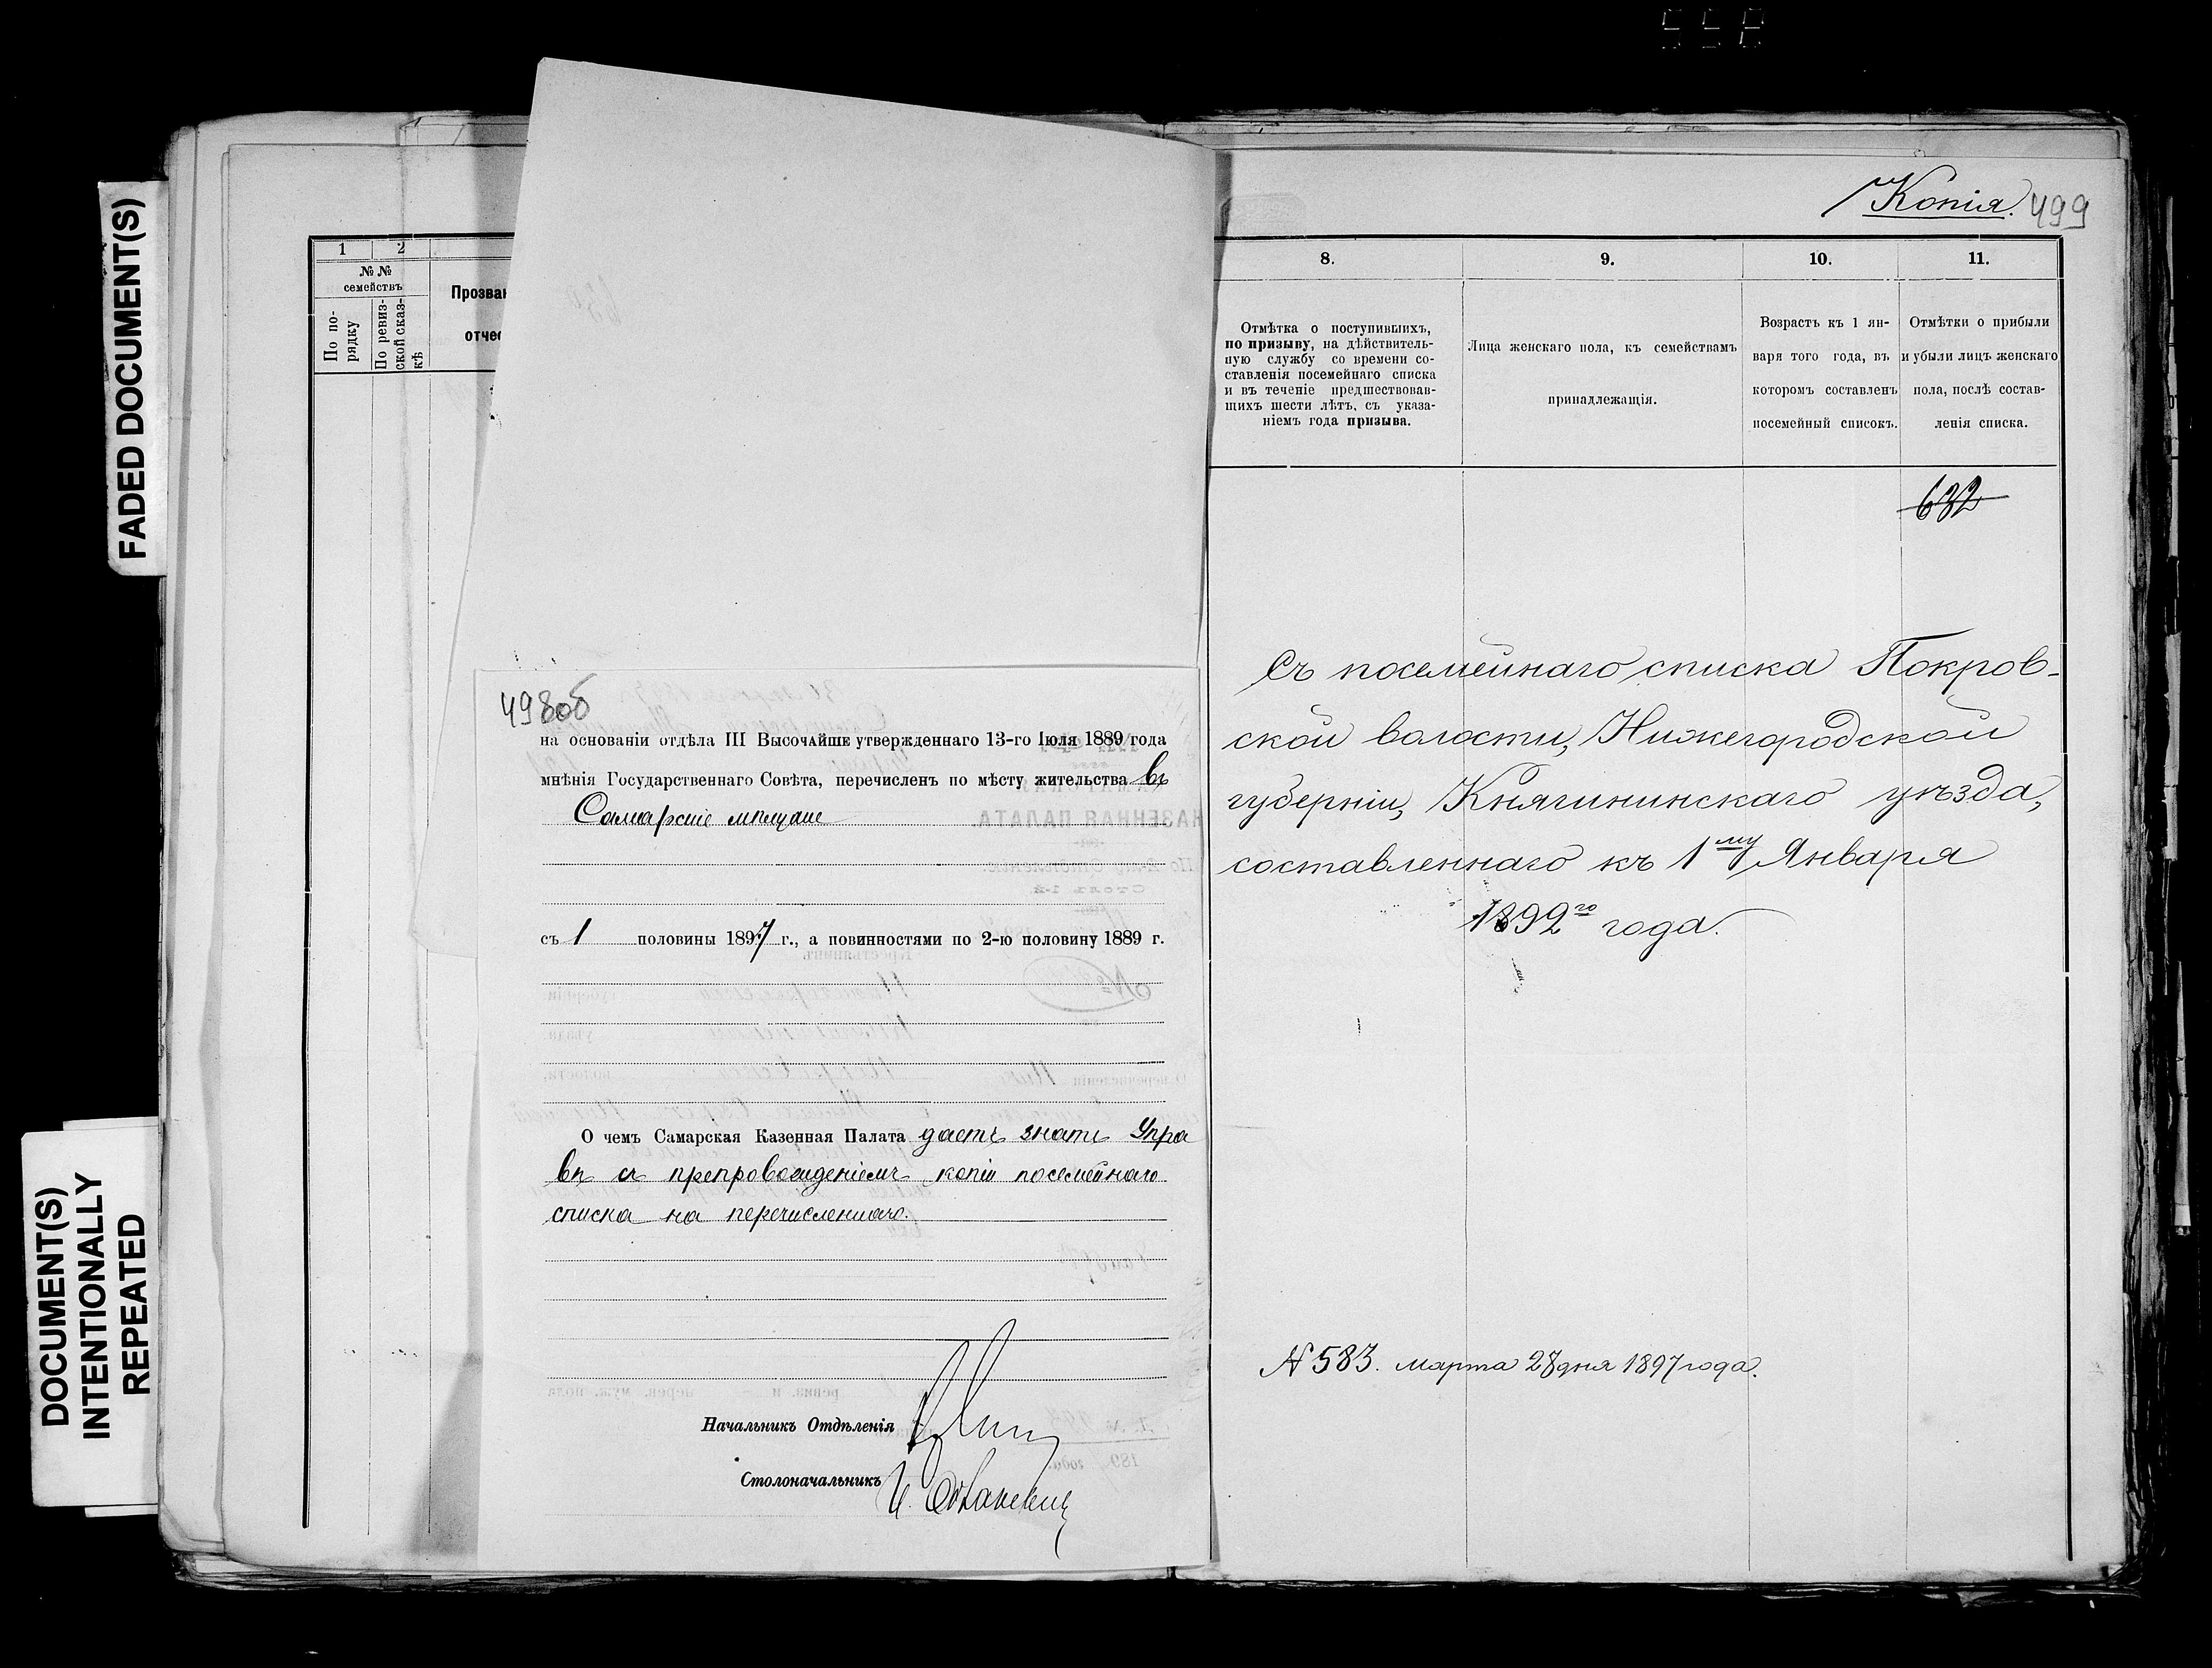 FADED DOCUMENT(S)
DOCUMENT(S)
INTENTIONALLY
REPEATED
1 2
№ №
семействъ
По по-
рядку
По ревиз-
ской сказ-
кѣ
Прозван
отчес
498об
на основаніи отдѣла III Высочайше утвержденнаго 13-го Іюля 1889 года
мнѣнія Государственнаго Совѣта, перечисленъ по мѣсту жительства въ
Самарскіе мѣщане
съ 1 половины 1897 г., а повинностями по 2-ю половину 1889 г.
О чемъ Самарская Казенная Палата даетъ знать Упра
вѣ съ препровожденіемъ копіи посемейнаго
списка на перечисленнаго.
Начальникъ Отдѣленія
Столоначальникъ
Копія. 499
8. 9. 10. 11.
Отмѣтка о поступившихъ,
по призыву, на дѣйствитель-
ную службу со времени со-
ставленія посемейнаго списка
и въ теченіе предшествовав-
шихъ шести лѣтъ, съ указа-
ніемъ года призыва.
Лица женскаго пола, къ семействамъ
принадлежащія.
Возрастъ къ 1 ян-
варя того года, въ
которомъ составленъ
посемейный списокъ.
Отмѣтки о прибыли
и убыли лицъ женскаго
пола, послѣ состав-
ленія списка.
632
Съ посемейнаго списка Покров-
ской волости, Нижегородской
губерніи, Княгининскаго уѣзда,
составленнаго къ 1му Января
1892го года.
№ 583. марта 28 дня 1897 года.